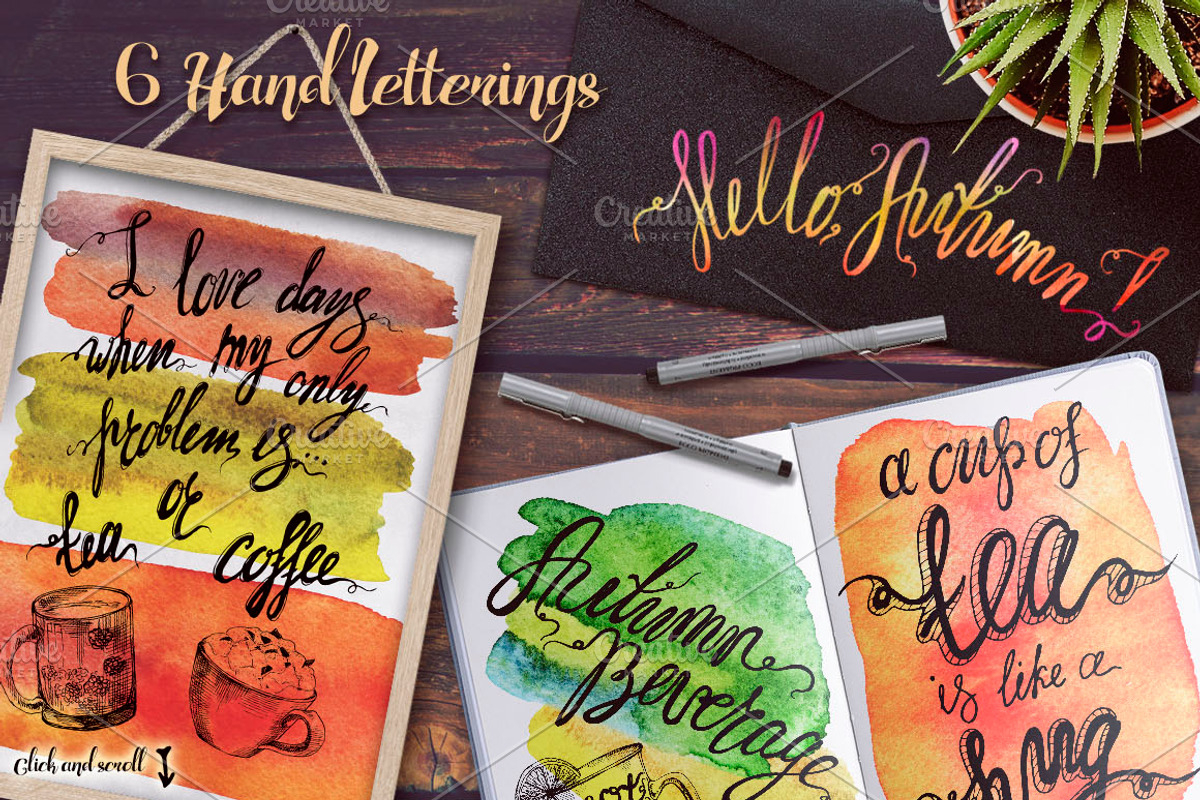 6 Hand Letterings
Hello, Autumn!
I love days
when my only
problem is...
tea or coffee
Click and scroll
Autumn
Beverage
a cup of
tea
is like a
hug
Creative
MARKET